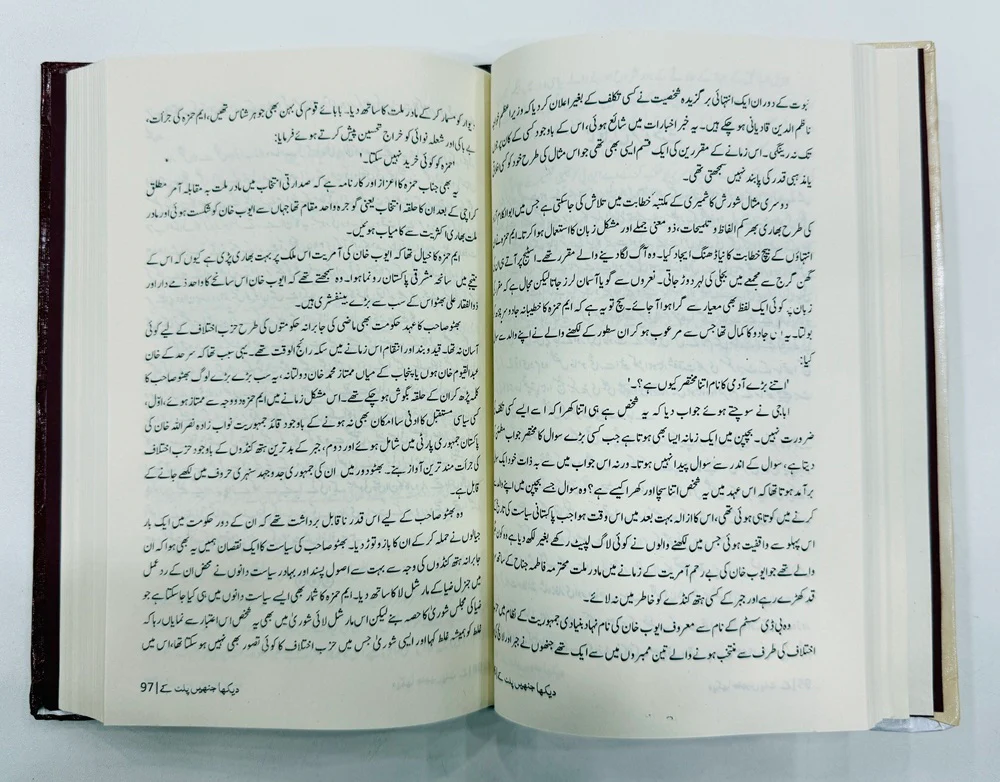 نبوت کے دوران ایک انتہائی برگزیدہ شخصیت نے کسی تکلف کے بغیر اعلان کر دیا کہ وزیر اعظم خواجہ
ناظم الدین قادیانی ہو چکے ہیں۔ یہ خبر اخبارات میں شائع ہوئی، اس کے باوجود کسی کے کان پر جوں
تک نہ رینگی۔ اس زمانے کے مقررین کی ایک قسم ایسی بھی تھی جو اس مثال کی طرح خود کو کسی اخلاقی
یا مذہبی قدر کی پابند نہیں سمجھتی تھی۔
دوسری مثال شورش کاشمیری کے مکتبۂ خطابت میں تلاش کی جا سکتی ہے جس میں ابوالکلام
کی طرح بھاری بھرکم الفاظ و تلمیحات، ذومعنی جملے اور مشکل زبان کا استعمال ہوا کرتا۔ ایم حمزہ نے ان
انتہاؤں کے بیچ خطابت کا نیا ڈھنگ ایجاد کیا۔ وہ آگ لگا دینے والے مقرر تھے۔ اسٹیج پر آتے ہی ان کی
گھن گرج سے مجمعے میں بجلی کی لہر دوڑ جاتی۔ نعروں سے گویا آسمان لرز جاتا لیکن مجال ہے کہ مقرر کی
زبان پر کوئی ایک لفظ بھی معیار سے گرا ہوا آجائے۔ سچ تو یہ ہے کہ ایم حمزہ کا خطیبانہ جادو سر چڑھ کر
بولتا۔ یہ اس جادو کا کمال تھا جس سے مرعوب ہو کر ان سطور کے لکھنے والے نے اپنے والد سے سوال
کیا:
'اتنے بڑے آدمی کا نام اتنا مختصر کیوں ہے؟۔'
اباجی نے سوچتے ہوئے جواب دیا کہ یہ شخص ہے ہی اتنا کھرا کہ اسے ایسے کسی تکلف کی
ضرورت نہیں۔ بچپن میں ایک زمانہ ایسا بھی ہوتا ہے جب کسی بڑے سوال کا مختصر جواب مطمئن کر
دیتا ہے، سوال کے اندر سے سوال پیدا نہیں ہوتا۔ ورنہ اس جواب میں سے بہ ذات خود ایک سوال
برآمد ہوتا تھا کہ اس عہد میں یہ شخص اتنا سچا اور کھرا کیسے ہے؟ وہ سوال جسے بچپن میں اپنے والد سے
کرنے میں کوتاہی ہوئی تھی، اس کا ازالہ بہت بعد میں اس وقت ہوا جب پاکستانی سیاست کی تاریخ کے
اس پہلو سے واقفیت ہوئی جس میں لکھنے والوں نے کوئی لاگ لپیٹ رکھے بغیر لکھ دیا ہے وہ کون
والے تھے جو ایوب خان کی بے رحم آمریت کے زمانے میں مادر ملت محترمہ فاطمہ جناح کے ساتھ
قد کھڑے رہے اور جبر کے کسی ہتھکنڈے کو خاطر میں نہ لائے۔
وہ بی ڈی سسٹم کے نام سے معروف ایوب خان کی نام نہاد بنیادی جمہوریت کے نظام میں حزب
اختلاف کی طرف سے منتخب ہونے والے تین ممبروں میں سے ایک تھے جنھوں نے جبر اور لالچ کی
دیکھا جنھیں پلٹ کے
دیوار کو مسمار کر کے مادر ملت کا ساتھ دیا۔ بابائے قوم کی بہن بھی جوہر شناس تھیں، ایم حمزہ کی جرأت،
بے باکی اور شعلہ نوائی کو خراج تحسین پیش کرتے ہوئے فرمایا:
'حمزہ کو کوئی خرید نہیں سکتا۔'
یہ بھی جناب حمزہ کا اعزاز اور کارنامہ ہے کہ صدارتی انتخاب میں مادر ملت بہ مقابلہ آمر مطلق
کراچی کے بعد ان کا حلقہ انتخاب یعنی گوجرہ واحد مقام تھا جہاں سے ایوب خان کو شکست ہوئی اور مادر
ملت بھاری اکثریت سے کامیاب ہوئیں۔
ایم حمزہ کا خیال تھا کہ ایوب خان کی آمریت اس ملک پر بہت بھاری پڑی ہے کیوں کہ اس کے
نتیجے میں سانحہ مشرقی پاکستان رونما ہوا۔ وہ سمجھتے تھے کہ ایوب خان اس سانحے کا واحد ذمے دار اور
ذوالفقار علی بھٹو اس کے سب سے بڑے بینفشری ہیں۔
بھٹو صاحب کا عہد حکومت بھی ماضی کی جابرانہ حکومتوں کی طرح حزب اختلاف کے لیے کوئی
آسان نہ تھا۔ قید و بند اور انتقام اس زمانے میں سکہ رائج الوقت تھے۔ یہی سبب تھا کہ سرحد کے خان
عبدالقیوم خان ہوں یا پنجاب کے میاں ممتاز محمد خان دولتانہ، یہ سب بڑے بڑے لوگ بھٹو صاحب کا
کلمہ پڑھ کر ان کے حلقہ بگوش ہو چکے تھے۔ اس مشکل زمانے میں ایم حمزہ دو وجہ سے ممتاز ہوئے، اول،
کسی سیاسی مستقبل کا ادنیٰ سا امکان بھی نہ ہونے کے باوجود قائد جمہوریت نواب زادہ نصر اللہ خان کی
پاکستان جمہوری پارٹی میں شامل ہوئے اور دوم، جبر کے بدترین ہتھکنڈوں کے باوجود حزب اختلاف
کی جرأت مند ترین آواز بنے۔ بھٹو دور میں ان کی جمہوری جدوجہد سنہری حروف میں لکھے جانے کے
قابل ہے۔
وہ بھٹو صاحب کے لیے اس قدر ناقابل برداشت تھے کہ ان کے دور حکومت میں ایک بار
جیالوں نے حملہ کر کے ان کا بازو توڑ دیا۔ بھٹو صاحب کی سیاست کا ایک نقصان ہمیں یہ بھی ہوا کہ ان
جابرانہ ہتھکنڈوں کی وجہ سے بہت سے اصول پسند اور بہادر سیاست دانوں نے محض ان کے رد عمل
میں جنرل ضیا کے مارشل لا کا ساتھ دیا۔ ایم حمزہ کا شمار بھی ایسے سیاست دانوں میں ہی کیا جا سکتا ہے جو
ضیا کی مجلس شوریٰ کا حصہ بنے لیکن اس مارشل لائی شوریٰ میں بھی یہ شخص اس اعتبار سے نمایاں رہا کہ
غلط کو ہمیشہ غلط کہا اور ایسی شوریٰ جس میں حزب اختلاف کا کوئی تصور بھی نہیں ہو سکتا تھا، اس میں
دیکھا جنھیں پلٹ کے | 97